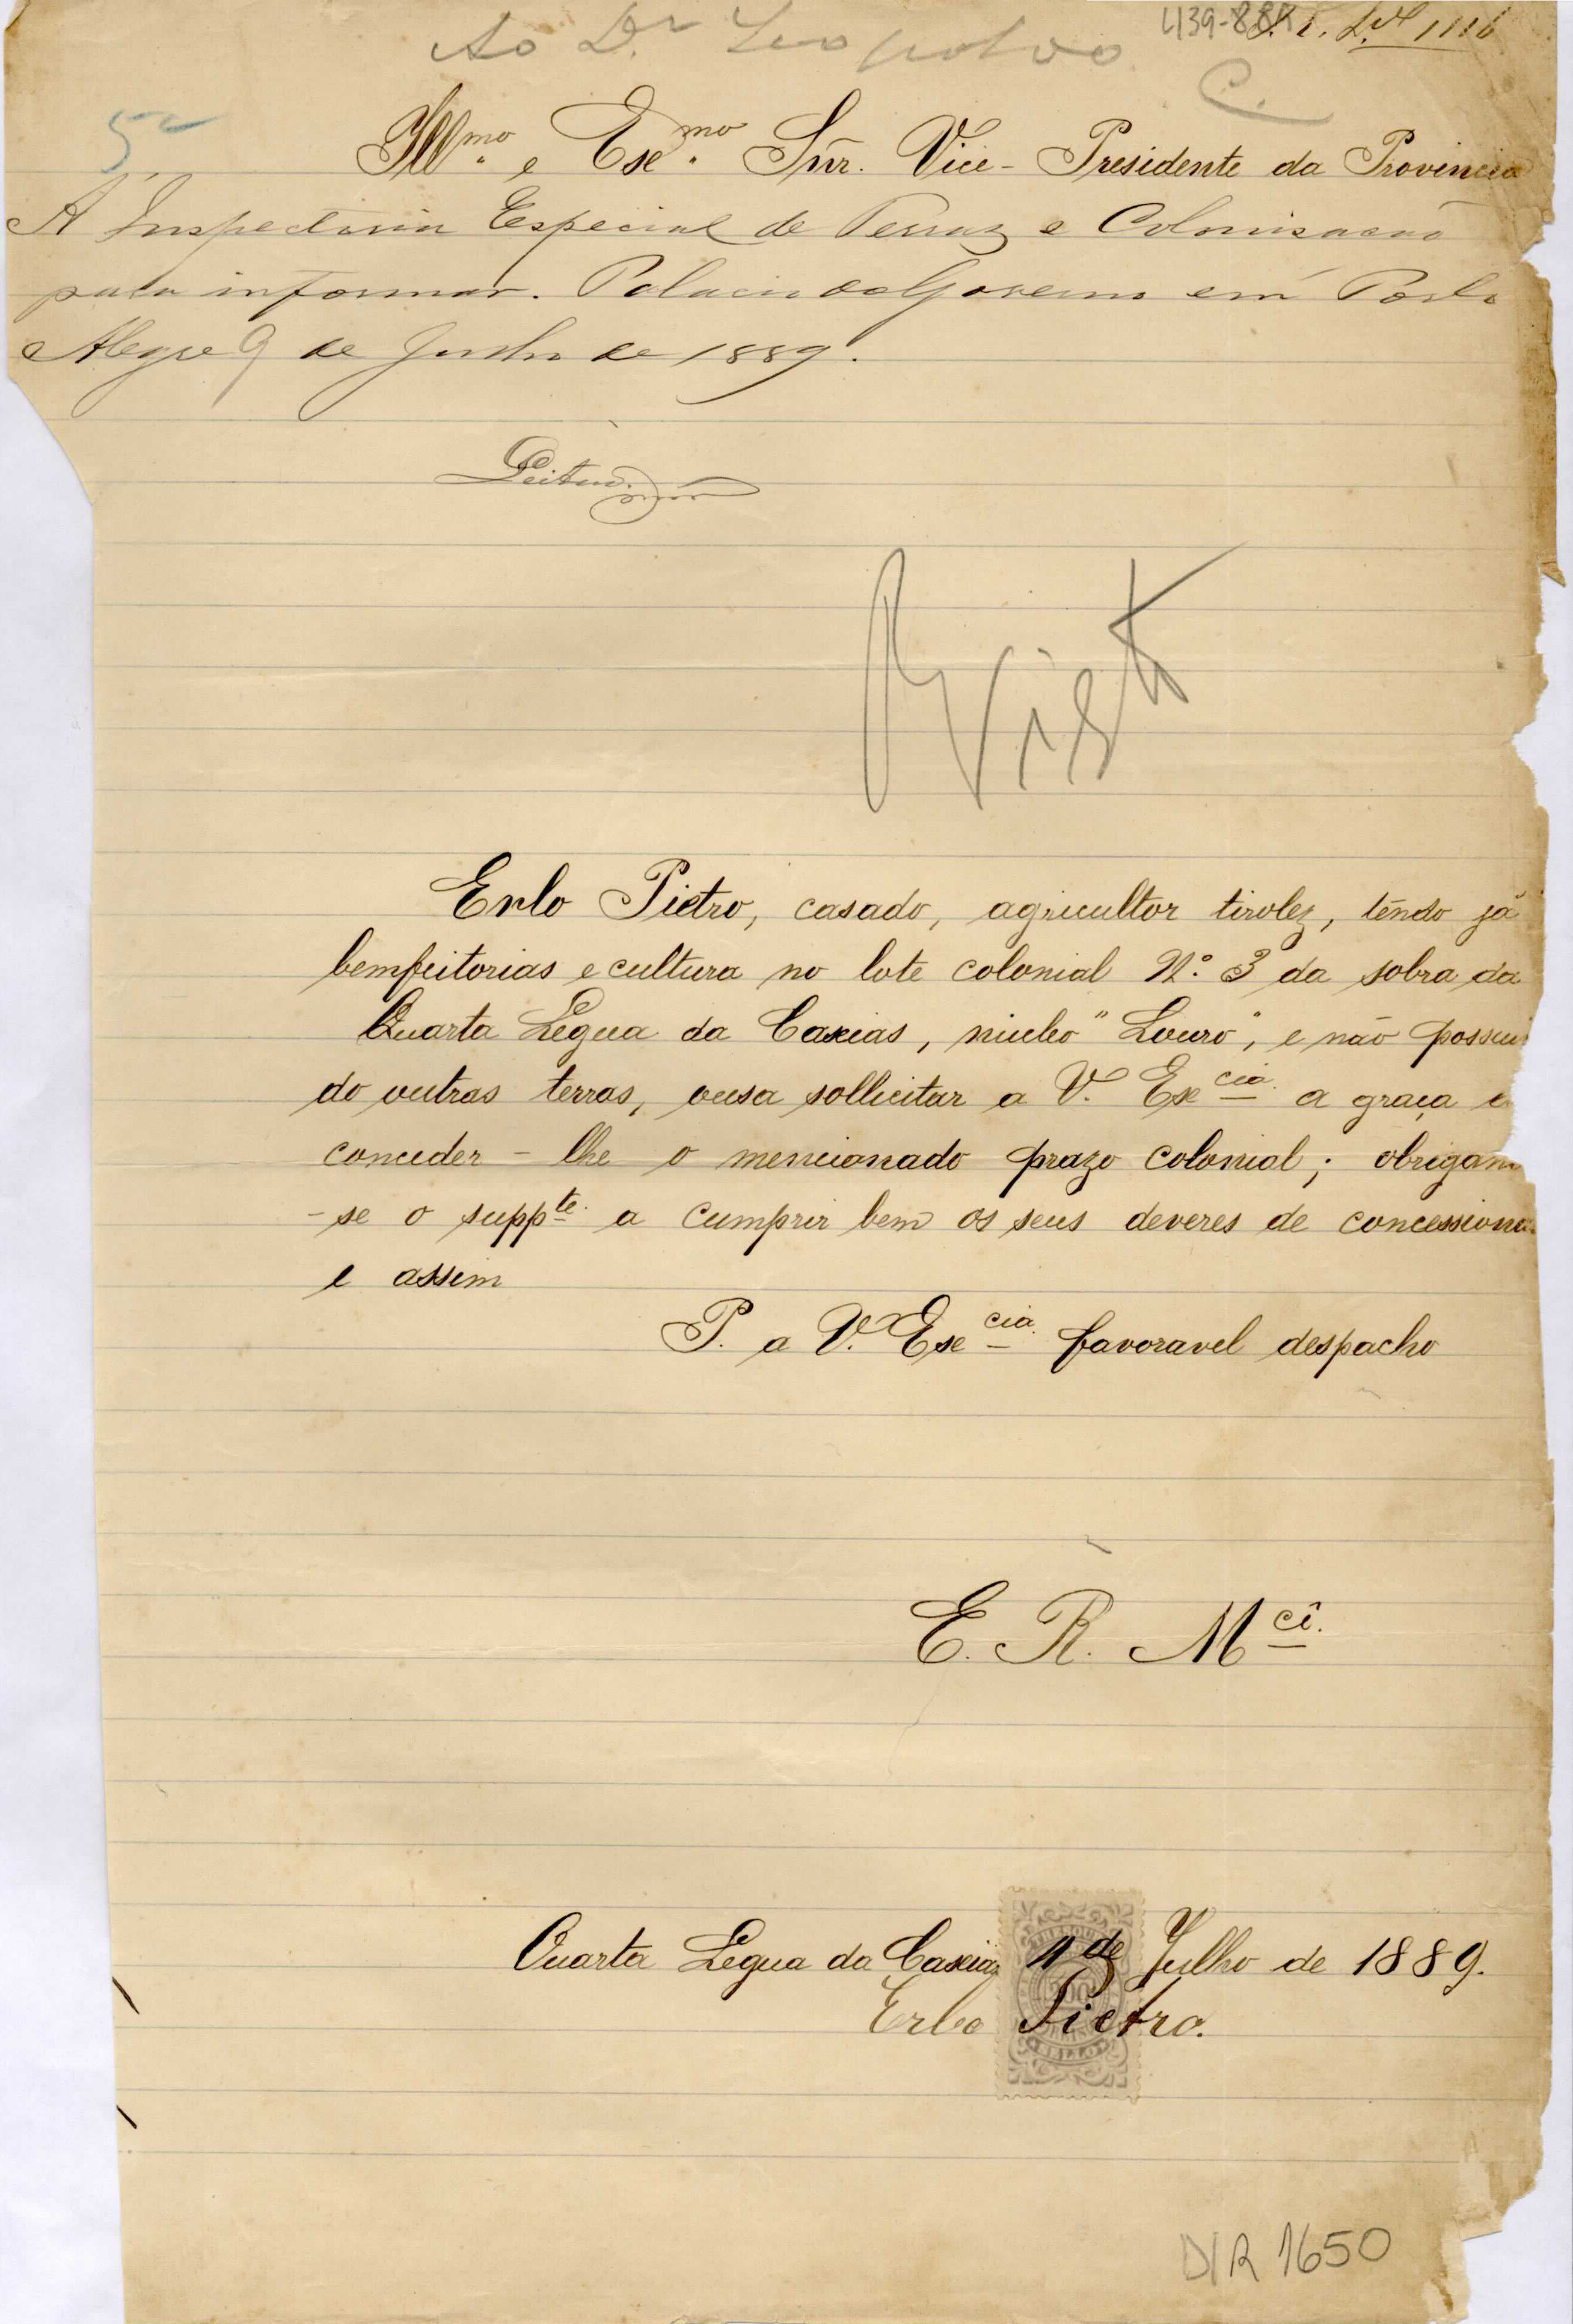 Ao Dr Leopoldo
439-88
C.
5ª
Illmo. e Exmo. Snr. Vice-Presidente da Provincia
A Inspectoria Especial de Terras e Colonisação
para informar. Palacio do Governo em Porto
Alegre 9 de Julho de 1889.
Visto
Erlo Pietro, casado, agricultor tirolez, tendo já
bemfeitorias e cultura no lote colonial N.º 3 da sobra da
Quarta Legua da Caxias, nucleo "Louro", e não possuin
do outras terras, ousa sollicitar a V. Excia. a graça
conceder-lhe o mencionado prazo colonial; obrigan
-se o suppte. a cumprir bem os seus deveres de concessiona
e assim
P. a V. Excia. favoravel despacho
E. R. Mcê.
Quarta Legua da Caxias 4 de Julho de 1889.
Erlo Pietro.
DIR 1650